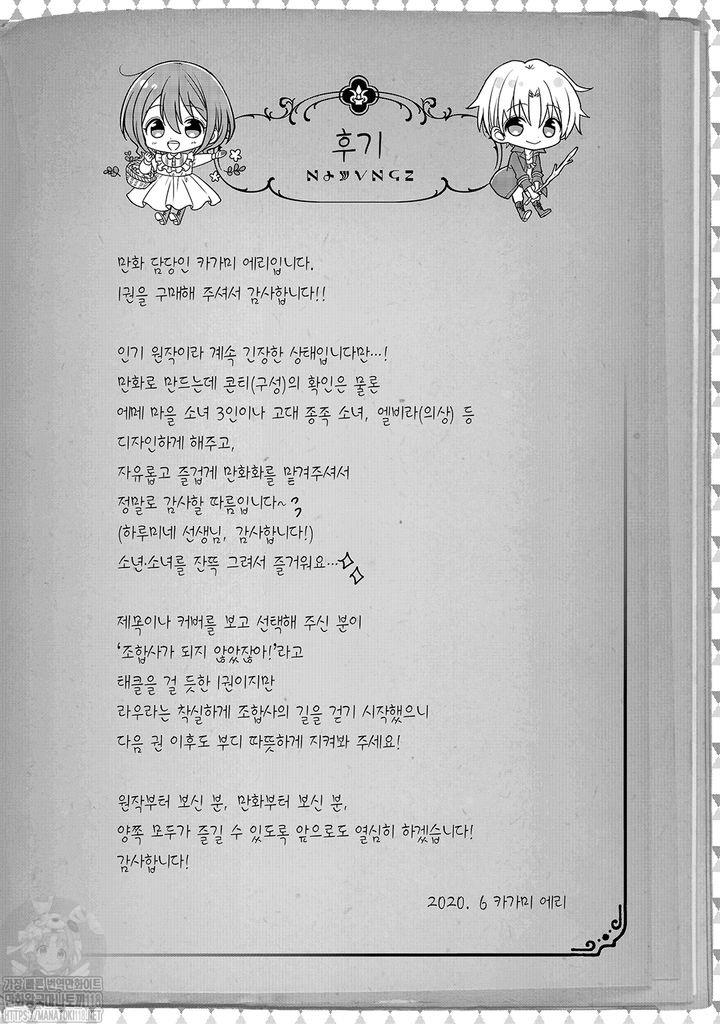 후기
만화 담당인 카가미 에리입니다.
1권을 구매해 주셔서 감사합니다!!
인기 원작이라 계속 긴장한 상태입니다만…!
만화로 만드는데 콘티(구성)의 확인은 물론
에메 마을 소녀 3인이나 고대 종족 소녀, 엘비라(의상) 등
디자인하게 해주고,
자유롭고 즐겁게 만화화를 맡겨주셔서
정말로 감사할 따름입니다~
(하루미네 선생님, 감사합니다!)
소년·소녀를 잔뜩 그려서 즐거워요…
제목이나 커버를 보고 선택해 주신 분이
'조합사가 되지 않았잖아!'라고
태클을 걸 듯한 1권이지만
라우라는 착실하게 조합사의 길을 걷기 시작했으니
다음 권 이후도 부디 따뜻하게 지켜봐 주세요!
원작부터 보신 분, 만화부터 보신 분,
양쪽 모두가 즐길 수 있도록 앞으로도 열심히 하겠습니다!
감사합니다!
2020. 6 카가미 에리
가장 빠른 번역만화이트
만화왕국마나토끼118
HTTPS://MANATOKI118.NET